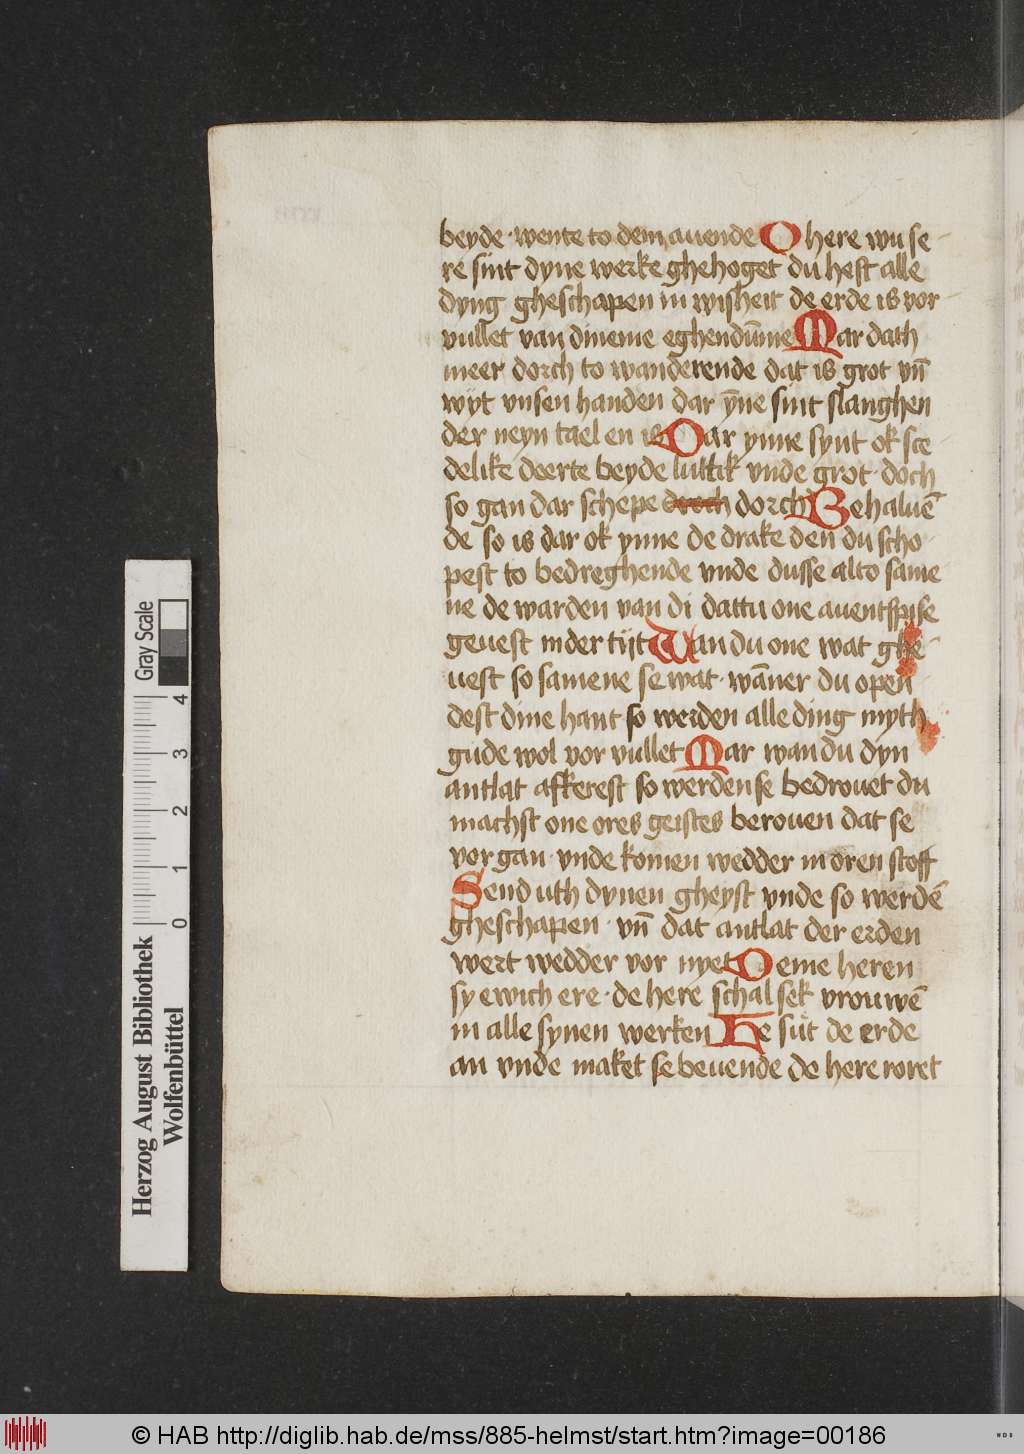 beyde · wente to dem auende O here wu se
re sint dyne werke ghehoget du hest alle
dyng gheschapen in wisheit de erde is vor
vullet van dineme eghendūme Mar dath
meer dorch to wanderende dat is grot vn̄
wyt vnsen handen dar ȳne sint slanghen
der neyn tael en is Dar ynne synt ok sce
delike deerte beyde luttik vnde grot · doch
so gan dar schepe droch dorch Behaluē
de so is dar ok ynne de drake den du scho
pest to bedreghende vnde dusse al to same
ne de warden van di dattu one auentspise
geuest in der tijt Wan du one wat ghe
uest so samene se wat · wāner du open
dest dine hant so werden alle ding myth
gude wol vor vullet Mar wan du dyn
antlat afkerest so werden se bedrouet du
machst one ores geistes berouen dat se
vorgan · vnde komen wedder in oren stoff
Send uth dynen gheyst vnde so werdē
gheschapen · vn̄ dat antlat der erden
wert wedder vor nyet Deme heren
sy ewich ere · de here schal sek vrouwē
in alle synen werken He sut de erde
an vnde maket se beuende de here roret
Gray Scale
0 1 2 3 4
Herzog August Bibliothek
Wolfenbüttel
© HAB http://diglib.hab.de/mss/885-helmst/start.htm?image=00186